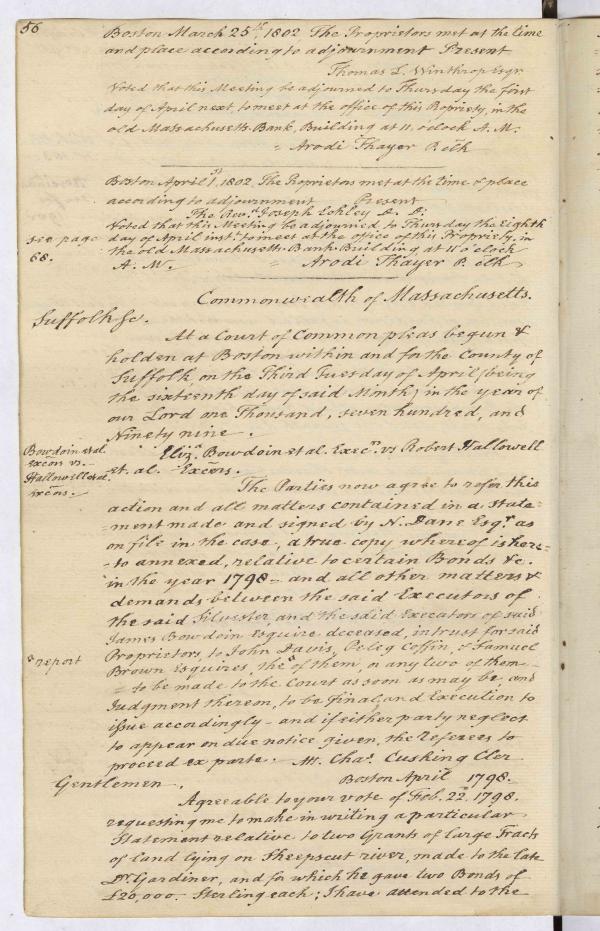 56
Boston March 25th. 1802. The Proprietors met at the time
and place according to adjournment Present
Thomas L. Winthrop Esqr.
Voted that this Meeting be adjourned to Thursday the first
day of April next to meet at the office of this Propriety, in the
old Massachusetts Bank, Building at 11, o'clock A. M.
= Arodi Thayer P. Clk
Boston April 1st. 1802. The Proprietors met at the time & place
according to adjournment Present
The Revd. Joseph Eckley D. D.
Voted that this Meeting be adjourned to Thursday the Eighth
see page
day of April inst. to meet at the office of this Propriety, in
68.
the old Massachusetts Bank Building at 11 o'clock
A. M. Arodi Thayer P. Clk
Commonwealth of Massachusetts.
Suffolk Sc.
At a Court of Common pleas begun &
holden at Boston within and for the County of
Suffolk on the Third Tuesday of April (being
the sixteenth day of said Month) in the year of
our Lord one Thousand, seven hundred, and
Ninety nine.
Bowdoin et al.
Excors vs.
Hallowell et al.
Eliza. Bowdoin et al. Execrs. vs Robert Hallowell
et. al. Excors.
The Parties now agree to refer this
action and all matters contained in a State=
=ment made and signed by N. Dane Esqr. as
on file in the case, a true copy whereof is here=
=to annexed, relative to certain Bonds &c.
in the year 1798 – and all other matters &
demands between the said Executors of
the said Silvester, and the said Executors of said
James Bowdoin Esquire deceased, in trust for said
Proprietors, to John Davis, Peleg Coffin, & Samuel
a report
Brown Esquires, the a of them, or any two of them –
= to be made to the Court as soon as may be, and
Judgment thereon, to be final, and Execution to
issue accordingly – and if either party neglect
to appear on due notice given, the Referees to
proceed ex parte. At. Chas. Cushing Cler
Boston April 1798.
Gentlemen.
Agreeable to your vote of Feb. 22d. 1798.
requesting me to make in writing a particular
Statement relative to two Grants of large Tracts
of land lying on Sheepscut river, made to the late
Dr. Gardiner, and for which he gave two Bonds of
£20,000. Sterling each; I have attended to the